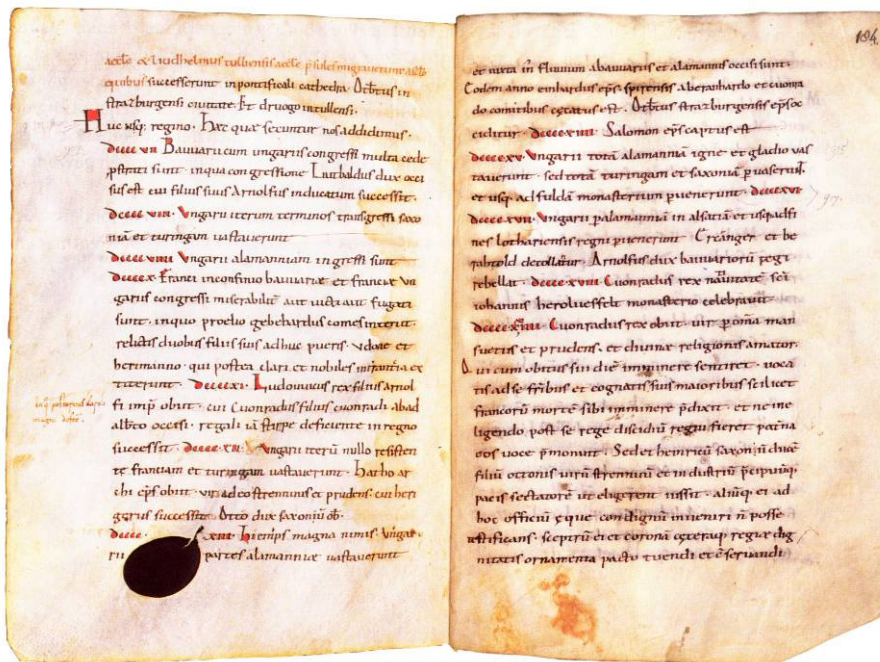 quibus successerunt inpontificali cathedra. Otbertus in
strazburgensi ciuitate. Et druogo intullensi.
Huc usq; regino. Hæc quæ secuntur nos addidimus.
dcccc vii Bauuarii cum ungariis congressi multa cede
pstrati sunt. inqua congressione Liutbaldus dux occi
sus est cui filius suus Arnolfus inducatum successit.
dcccc viii. Ungarii iterum terminos transgressi saxo
niā et turingam uastauerunt
dcccc viiii Ungarii alamanniam ingressi sunt
dcccc x. Franci inconfinio bauuariæ et franciæ un
gariis congressi miserabilit aut uicti aut fugati
sunt. inquo proelio gebehardus comes interiit.
relictis duobus filiis suis adhuc pueris. udone et
herimanno. qui postea clari et nobiles in francia ex
titerunt. dcccc xi. Ludouuicus rex filius arnol
fi imp obiit. cui Cuonradus filius cuonradi abad
albto occisi. regali iā stirpe deficiente in regno
successit. dcccc xii. Ungarii iterū nullo resisten
te franciam et turingam uastauerunt. Hatho ar
chi eps obiit. uir adeo strennuus et prudens. cui heri
gerus successit. Otto dux saxonū ob.
dcccc xiii. Hiemps magna nimis. Ungar
rii partes alamanniæ uastauerunt
184
et iuxta in fluuium abauuariis et alamannis occisi sunt.
Eodem anno einhardus eps spirensis abernhardo et cuonra
do comitibus cecatus est. Otbtus strazburgensis eps oc
ciditur. dcccc xiiii. Salomon eps captus est
dcccc xv. Ungarii totā alamanniā igne et gladio vas
tauerunt. sed totā turingam et saxoniā puaserūt
et usq; ad fuldā monasterium puenerunt. dcccc xvi
dcccc xvii. Ungarii palamanniā in alsatiā et usq; adfi
nes lothariensis regni puenerunt. Erchanger et be
rahtold decollantur. Arnolfus dux bauuariorū regi
rebellat. dcccc xviii. Cuonradus rex natiuitatē sci
iohannis heroluesfelt monasterio celebrauit
dcccc xviiii. Cuonradus rex obiit. uir p omia man
suetus et prudens. et diuinæ religionis amator.
Qui cum obitus sui diē imminere sentiret. uoca
tis ad se fribus et cognatis suis maioribus scilicet
francorū mortē sibi imminere pdixit. et ne in e
ligendo post se rege discidiū regni fieret patna
eos uoce pmonuit. Sed et heinricū saxonū ducē
filiū ottonis uirū strennuū et industriū pcipuūq;
pacis sectatorē ut eligerent iussit. aliūq; ei ad
hoc officiū eque condignū inueniri ñ posse
testificans. sceptrū ei et coronā ceteraq; regiæ dig
nitatis ornamenta pacto tuendi et cseruandi